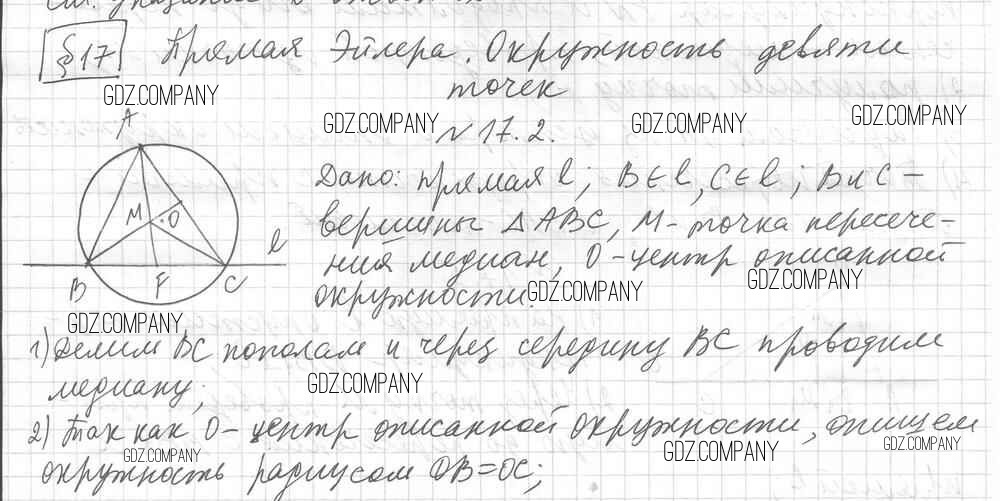 §17 Прямая Эйлера. Окружность девяти
точек
GDZ.COMPANY
GDZ.COMPANY
GDZ.COMPANY
GDZ.COMPANY
N 17.2.
A
M
O
l
B
F
C
Дано: прямая l; B∈l, C∈l; B и C –
вершины △ABC, M- точка пересече-
ния медиан, O-центр описанной
окружности.
GDZ.COMPANY
GDZ.COMPANY
GDZ.COMPANY
1) Делим BC пополам и через середину BC проводим
медиану;
GDZ.COMPANY
2) Так как O- центр описанной окружности, опишем
окружность радиусом OB=OC;
GDZ.COMPANY
GDZ.COMPANY
GDZ.COMPANY